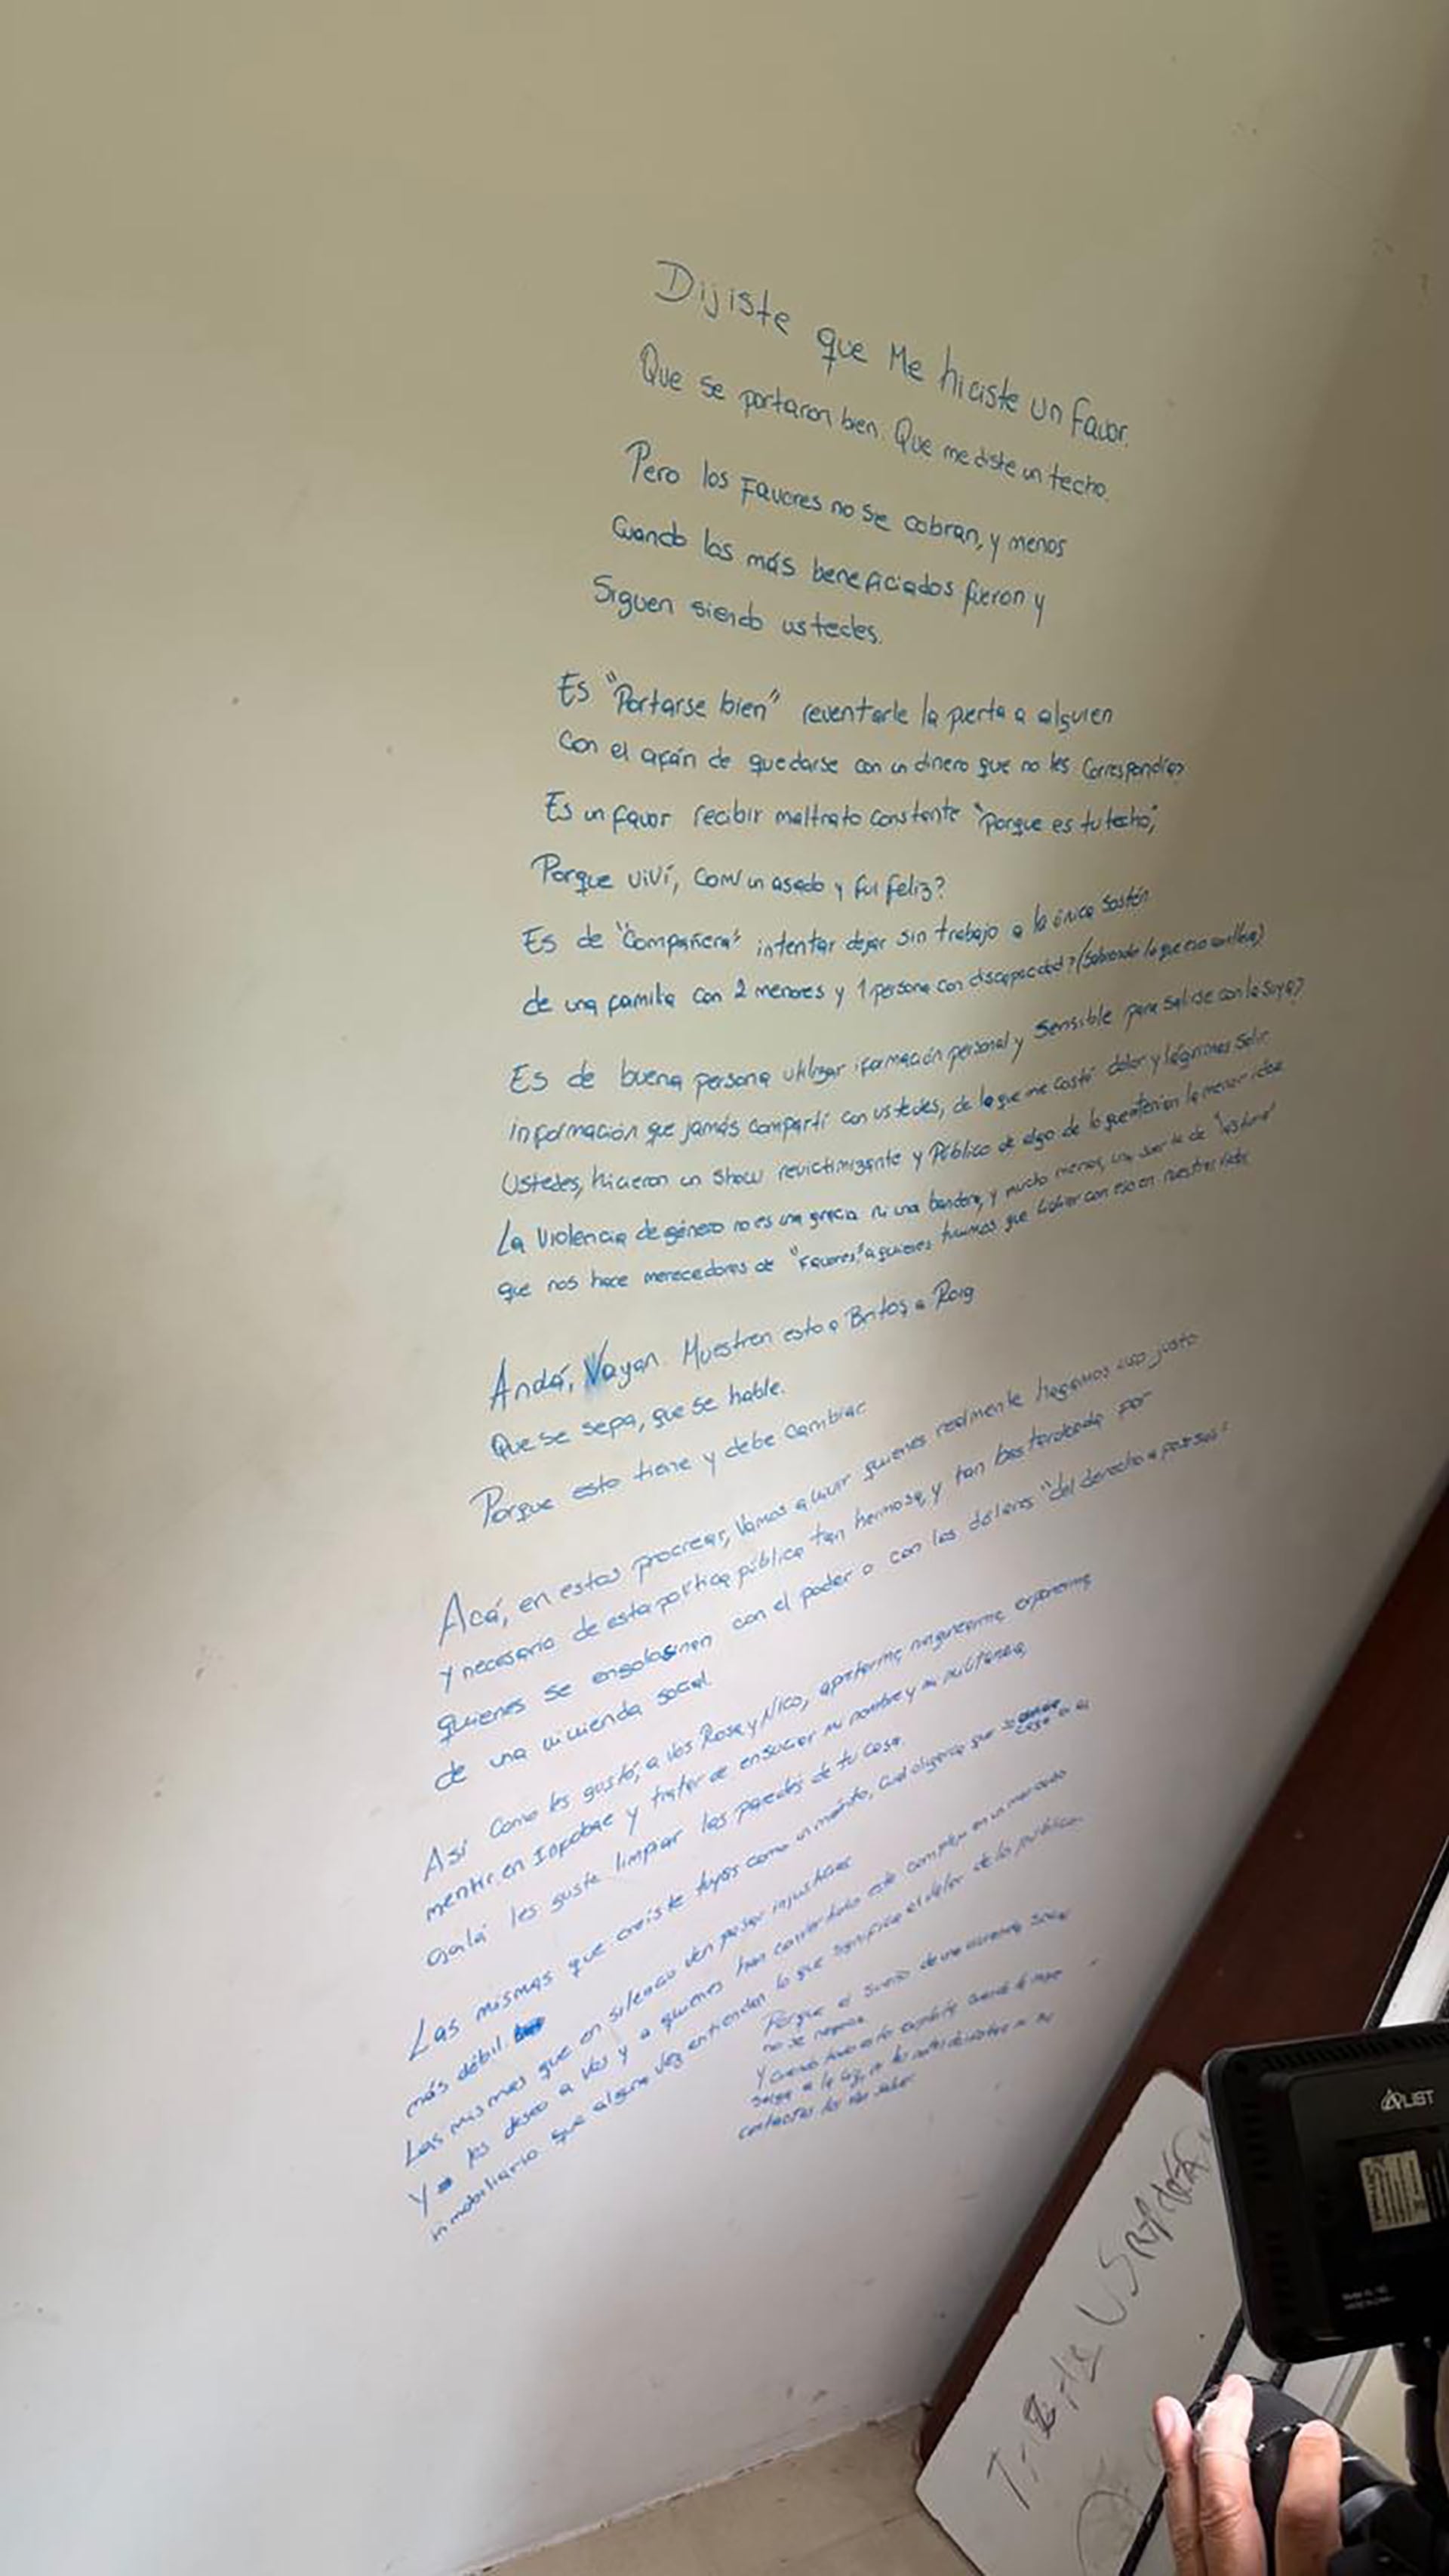 Dijiste que Me hiciste un favor.
Que se portaron bien. Que me diste un techo.
Pero los Favores no se cobran, y menos
Cuando los más beneficiados fueron y
Siguen siendo ustedes.
Es "Portarse bien" reventarle la puerta a alguien
Con el afán de quedarse con un dinero que no les Correspondía?
Es un favor recibir maltrato constante "porque es tu techo",
Porque viví, comí un asado y fui feliz?
Es de "Compañera" intentar dejar sin trabajo a la única sostén
de una familia con 2 menores y 1 persona con discapacidad? (Sabiendo lo que eso conlleva)
Es de buena persona utilizar iformación personal y sensible para salirse con la suya?
información que jamás compartí con ustedes, de la que me costó dolor y lágrimas salir.
Ustedes, hicieron un show revictimizante y Público de algo de lo que tenían la menor idea
La violencia de género no es una gracia ni una bandera, y mucho menos, una suerte de
que nos hace merecedoras de "Favores", a quienes tuvimos que lidiar con eso en nuestras vidas.
Andá, Vayan. Muestren esto a Britos, a Roig
Que se sepa, que se hable.
Porque esto tiene y debe cambiar
Acá, en estos procrear, Vamos a vivir quienes realmente hagamos uso justo
y necesario de esta política pública tan hermosa, y tan bastardeada por
quienes se engolosinan con el poder o con los dólares "del derecho a
de una vivienda social.
Así como les gustó, a vos Rosa y Nico, apretarme, ningunearme, exponerme
mentir en Infobae y tratar de ensuciar mi nombre y mi militancia,
ojalá les guste limpiar las paredes de tu casa.
Las mismas que creíste tuyas como un mérito, cual oligarca que
más débil.
Las mismas que en silencio ven pasar injusticias
Y les deseo a vos y a quienes han convertido este complejo en un mercado
inmobiliario que alguna vez entiendan lo que significa el valor de lo público.
Porque el sueño de una vivienda social
no se negocia.
Y cuando todo esto explote, cuando
salga a la luz,
contactos los van salvar.
ALIST